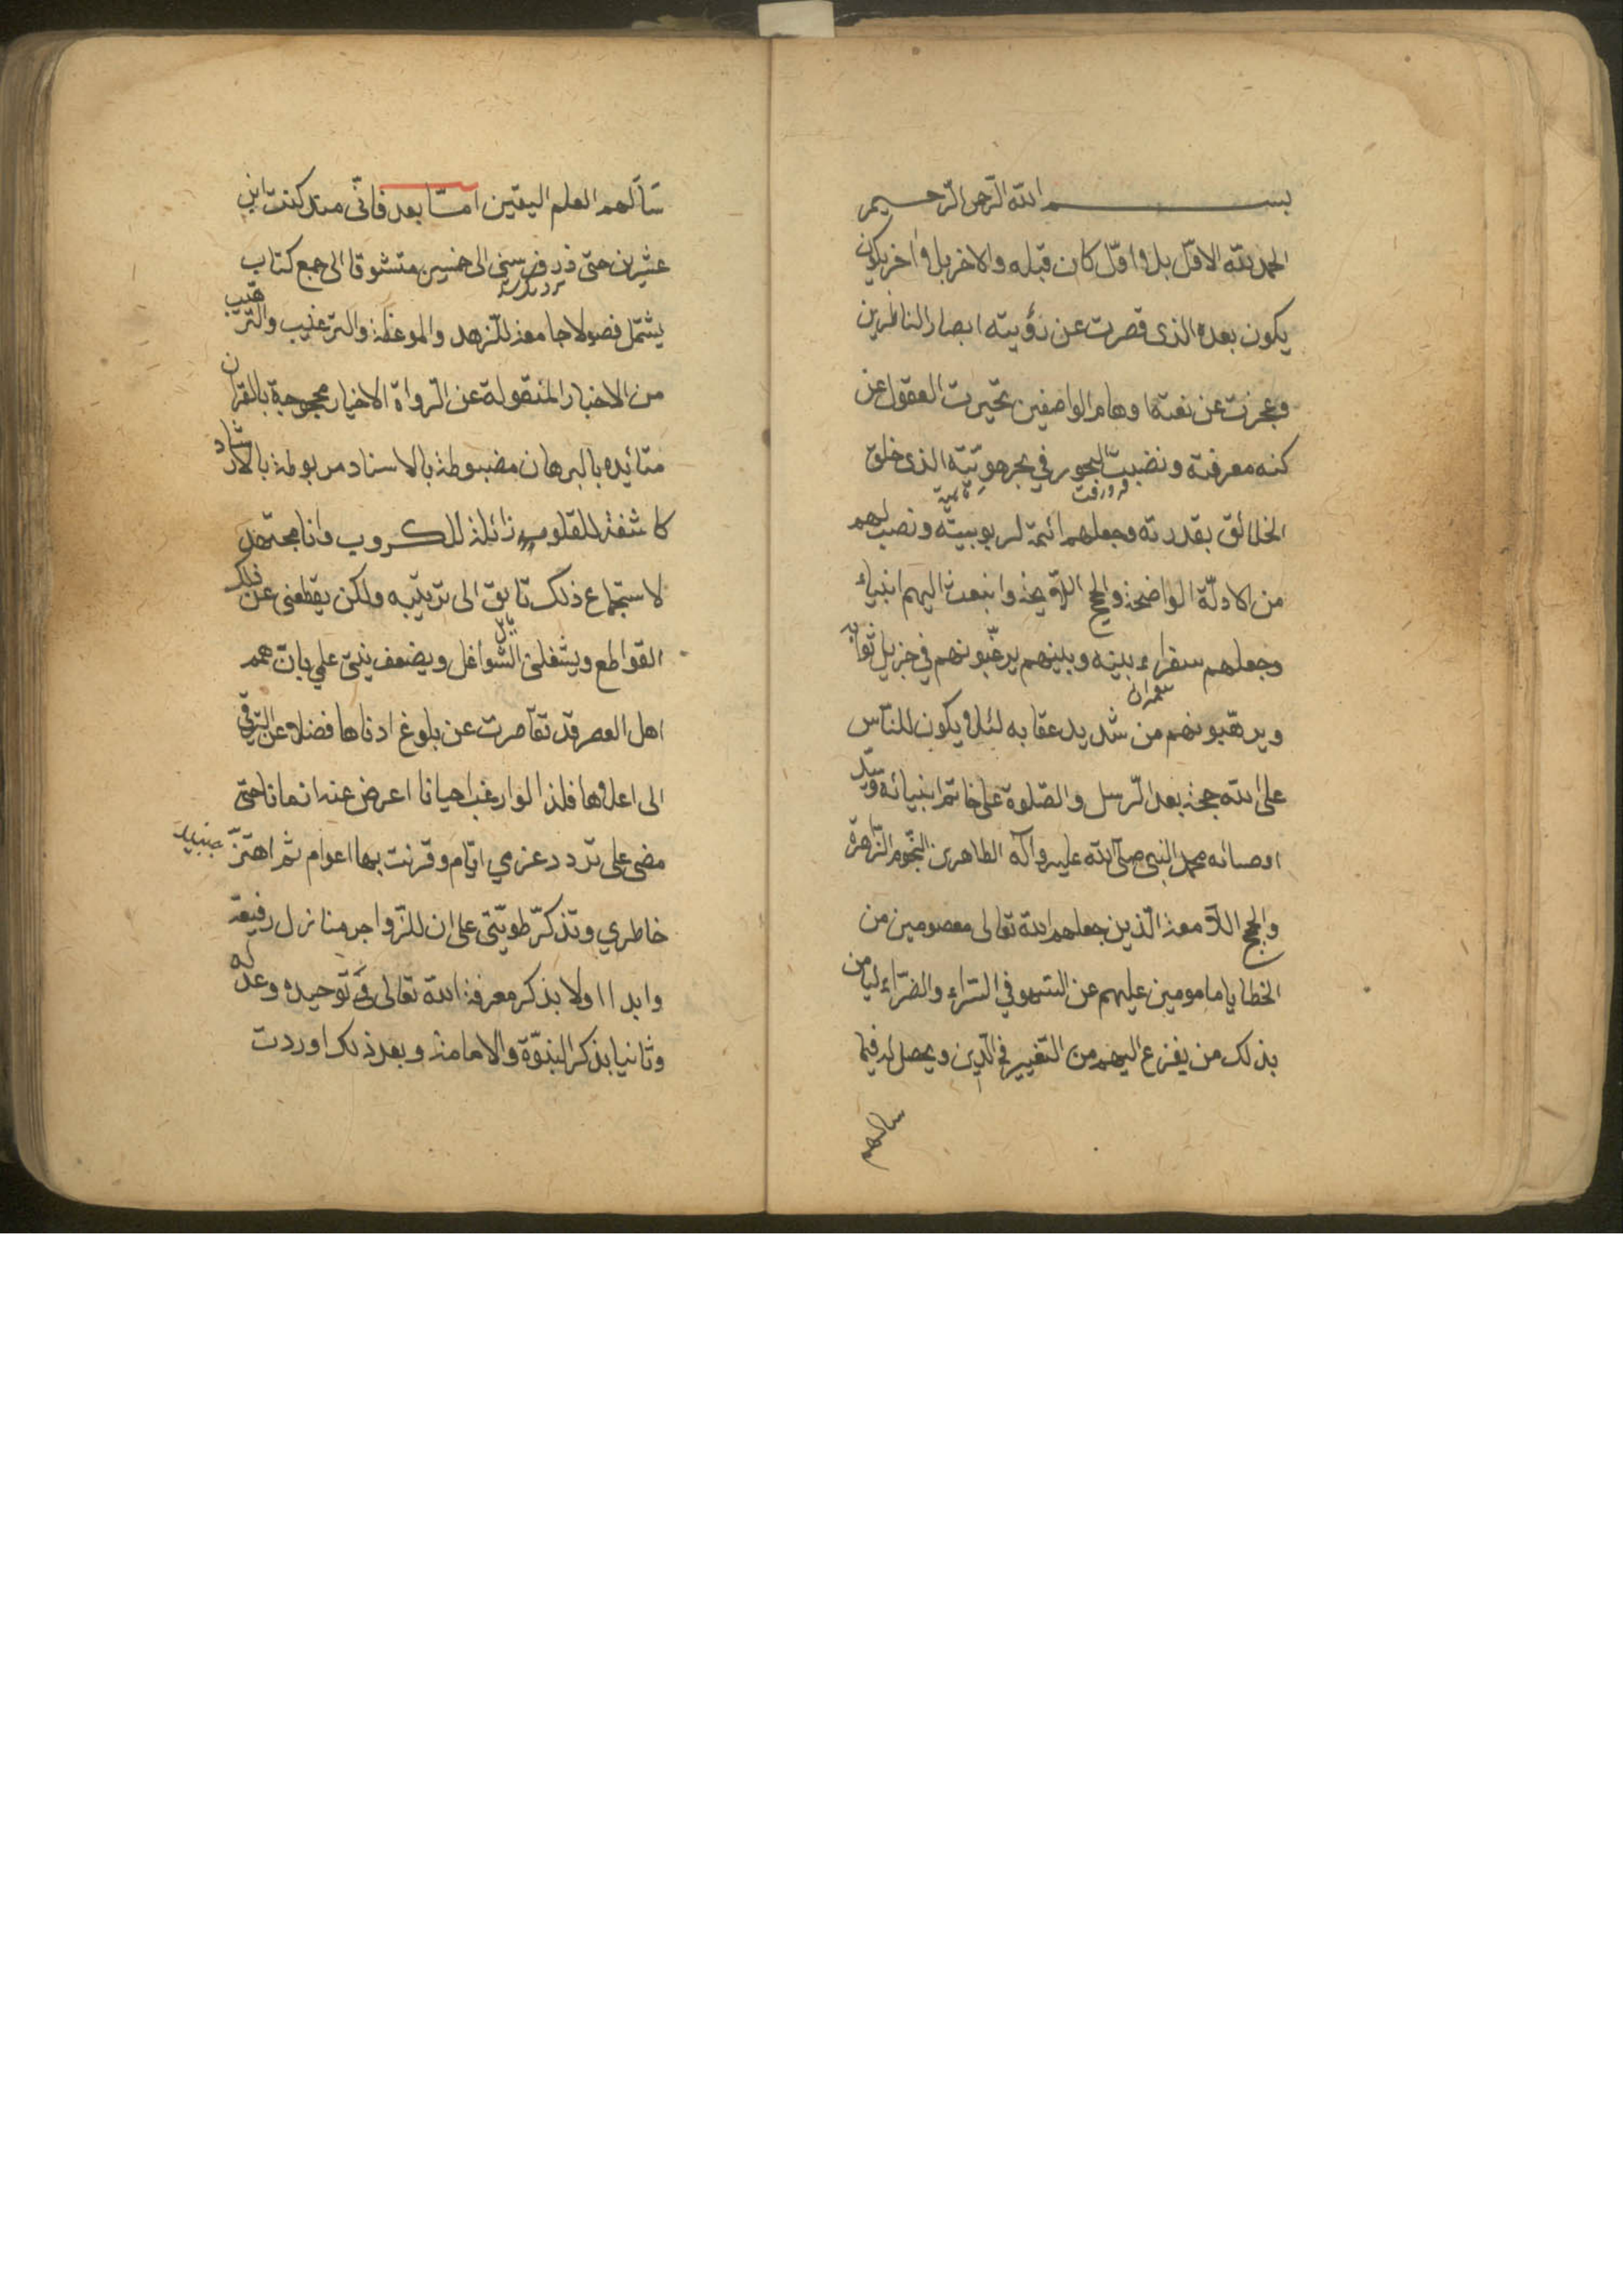 بسم الله الرحمن الرحيم
الحمد لله الاوّل بلا اوّل كان قبله والاخر بلا اخر يكون
يكون بعده الذى قصرت عن رؤيته ابصار الناظرين
وعجزت عن نعته اوهام الواصفين تحيرت العقول عن
كنه معرفته ونضبت البحور في بحر هويّته الذى خلق
الخلائق بقدرته وجعلهم ائمة لربوبيّته ونصب لهم
من الادلّة الواضحة والحجج اللايحة وانبعث اليهم انبياء
وجعلهم سفراء بينه وبينهم يرغّبونهم في جزيل ثوابه
ويرهّبونهم من شديد عقابه لئلا يكون للنّاس
على الله حجة بعد الرّسل والصّلوة على خاتم انبيائه وسيّد
اوصيائه محمد النبى صلّى الله عليه وآله الطاهرين النّجوم الزّاهرة
والحجج اللامعة الّذين جعلهم الله تعالى معصومين من
الخطايا مامومين عليهم عن السّهو في السّراء والضرّاء ليامن
بذلك من يفزع اليهم من التّغيير فى الدّين ويحصل له فيما
سالهم
سَألهم العلم اليقين امّا بعد فانّى منذ كنت ابن
عشرين حتى ذرف سنى الى خمسين متشوقا الى جمع كتاب
يشتمل فصولا جامعة للزهد والموعظة والترغيب والترهيب
من الاخبار المنقولة عن الرواة الاخيار محجوجة بالقران
متائيده بالبرهان مضبوطة بالاسناد مربوطة بالارشاد
كاشفة للقلوب زائلة للكروب وانا مجتهد
لاستجماع ذلك تايق الى ترتيبه ولكن يقطعنى عن ذلك
القواطع ويشغلنى الشّواغل ويضعف نيتى علي بان همم
اهل العصر قد تقاصرت عن بلوغ ادناها فضلا عن الترقى
الى اعلاها فلذا الوا رغب احيانا اعرض عنه ازمانا حتى
مضى على تردد عزمي ايّام وقرنت بها اعوام ثم اهتزّ
خاطري وتذكرّ طويّتى على ان للزّواجر منازل رفيعة
وابدا اولا بذكر معرفة الله تعالى وتوحيده وعدله
وثانيا بذكر النبوّة والامامة وبعد ذلك اوردت